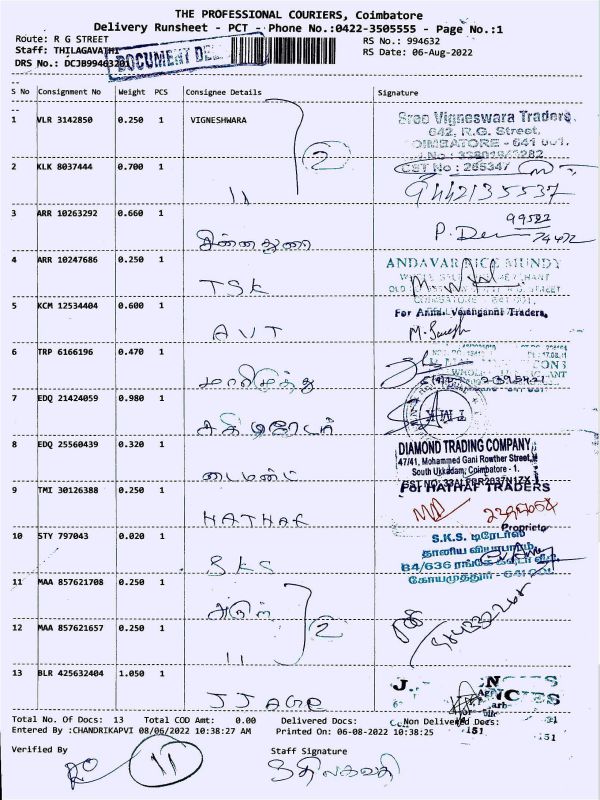 THE PROFESSIONAL COURIERS, Coimbatore
Delivery Runsheet - PCT - Phone No.:0422-3505555 - Page No.:1
Route: R G STREET
RS No.: 994632
Staff: THILAGAVATHI
RS Date: 06-Aug-2022
DRS No.: DCJB99463201
DOCUMENT DEL
S No Consignment No Weight PCS Consignee Details Signature
1 VLR 3142850 0.250 1 VIGNESHWARA
Sree Vigneswara Traders,
642, R.G. Street,
COIMBATORE - 641 001.
CST No : 265347
2 KLK 8037444 0.700 1 11 2
9442135537
3 ARR 10263292 0.660 1 சின்னதுரை
4 ARR 10247686 0.250 1 TSK
ANDAVAR RICE MUNDY
5 KCM 12534404 0.600 1 AVT
For Annai Velanganni Traders,
M. Suresh
6 TRP 6166196 0.470 1 மாரிமுத்து
7 EDQ 21424059 0.980 1 சக்தி டிரேடர்
8 EDQ 25560439 0.320 1 டைமண்ட்
DIAMOND TRADING COMPANY
47/41, Mohammed Gani Rowther Street,
South Ukkadam, Coimbatore - 1.
9 TMI 30126388 0.250 1 HATHAF
For HATHAF TRADERS
Proprietor
10 STY 797043 0.020 1 SKS
S.K.S. டிரேடர்ஸ்
தானிய வியாபாரம்
84/636 ரங்கே
கோயமுத்தூர் - 641 001
11 MAA 857621708 0.250 1 அருள்
12 MAA 857621657 0.250 1 11 2
13 BLR 425632404 1.050 1 JJAGR
Total No. Of Docs: 13 Total COD Amt: 0.00 Delivered Docs: Non Delivered Docs:
Entered By :CHANDRIKAPVI 08/06/2022 10:38:27 AM Printed On: 06-08-2022 10:38:25
Verified By
Staff Signature
11
திலகவதி